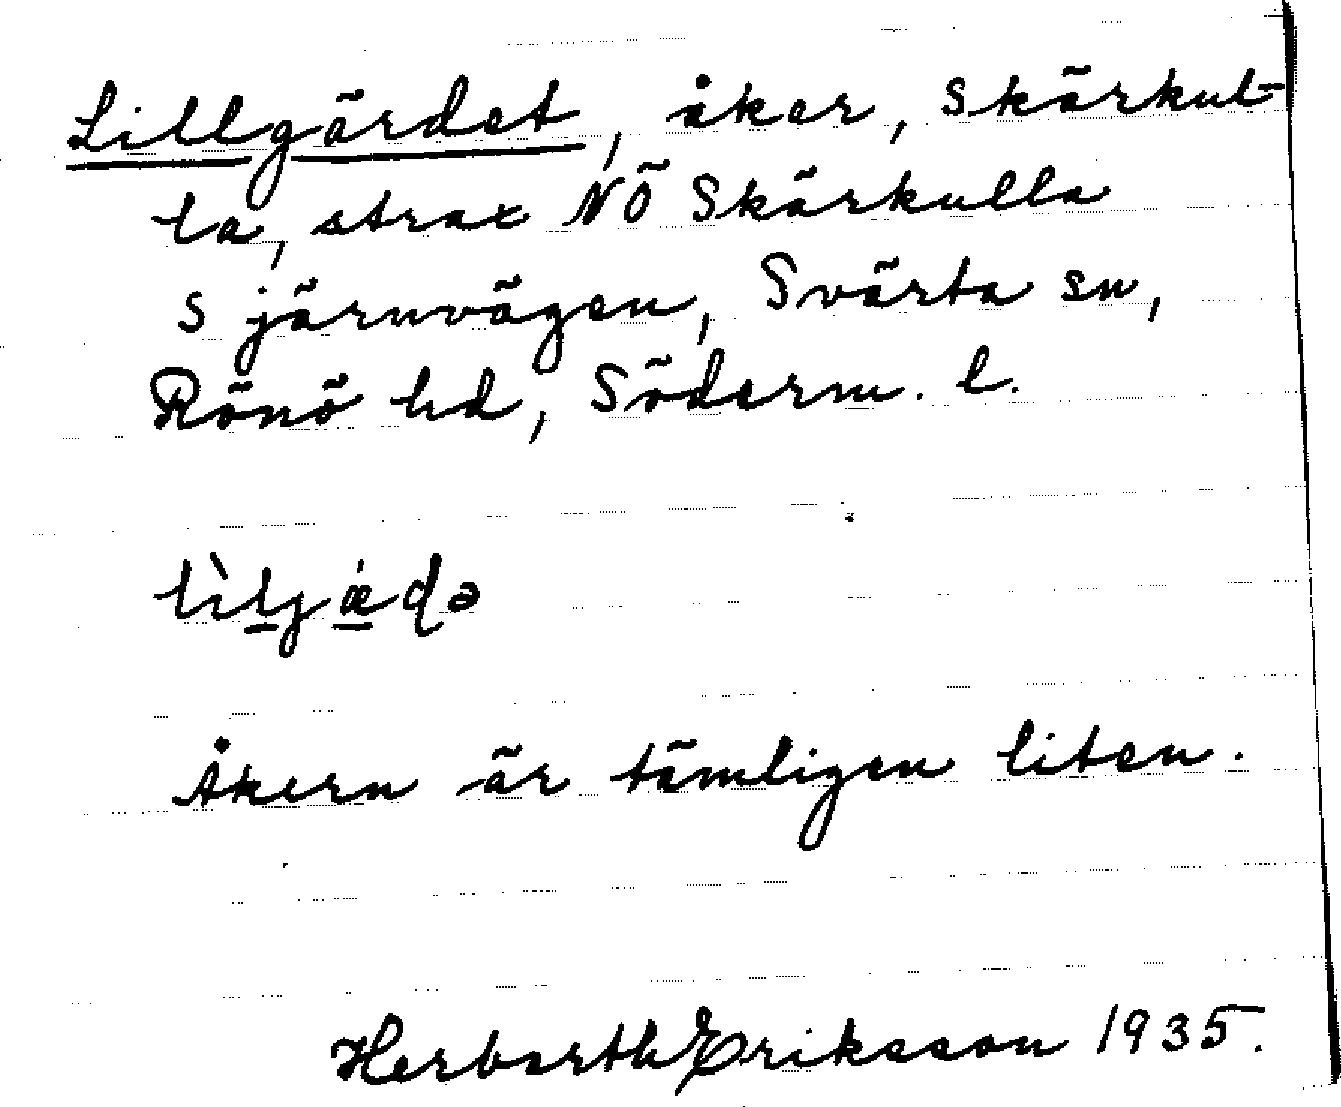 Lillgärdet, åker, Skärkul-
la, strax NÖ Skärkulla
S järnvägen, Svärta sn,
Rönö hd, Söderm. l.
lìljǽɖə
Åkern är tämligen liten.
Herbarth Eriksson 1935.